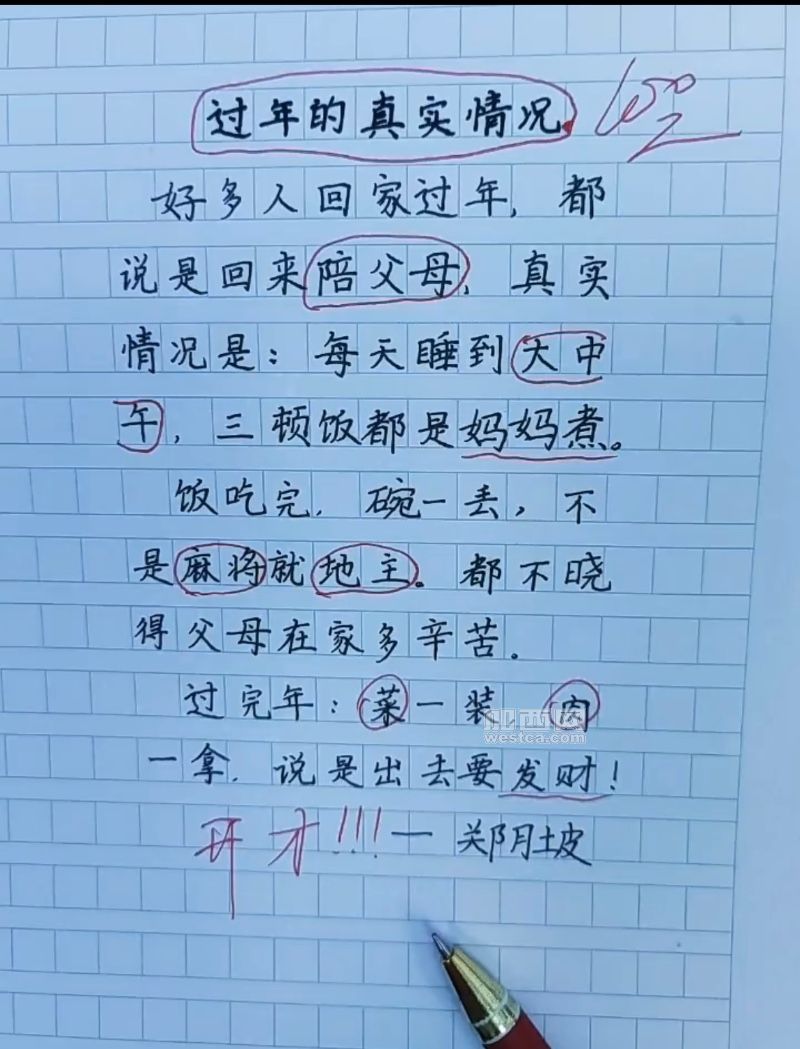 过年的真实情况
100
好多人回家过年，都
说是回来陪父母，真实
情况是：每天睡到大中
午，三顿饭都是妈妈煮。
饭吃完，碗一丢，不
是麻将就地主。都不晓
得父母在家多辛苦。
过完年：菜一装 肉
westca.com
一拿，说是出去要发财！
!!!一